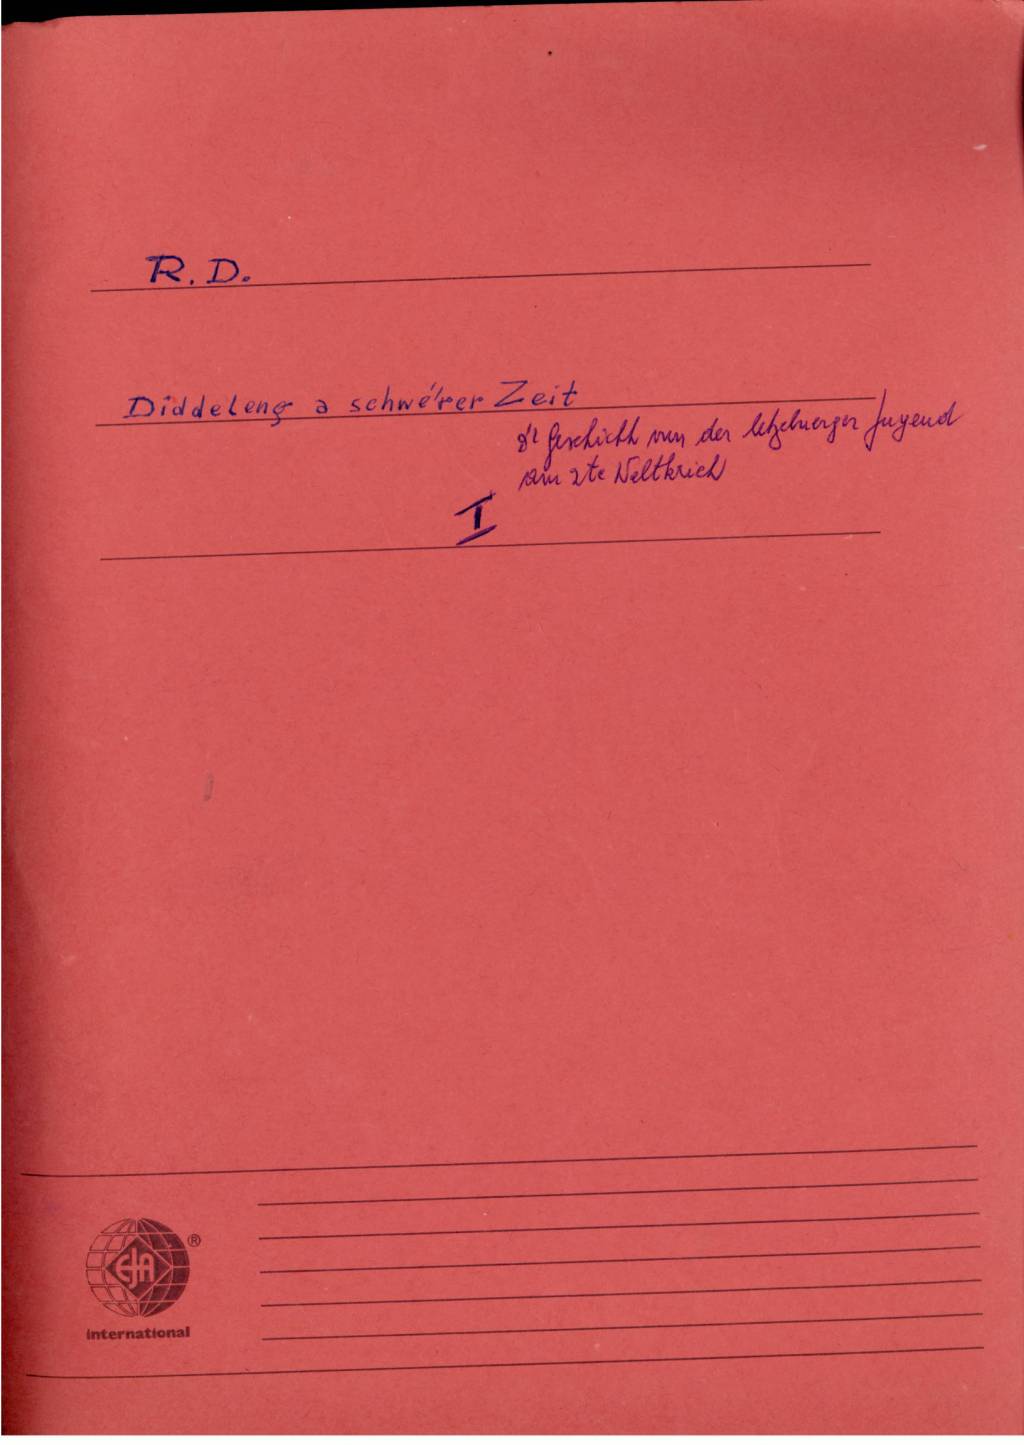 R. D.
Diddeleng a schwéier Zeit
d'Geschicht vun der letzebuerger Jugend
am 2te Weltkrich
I
EJA ®
international